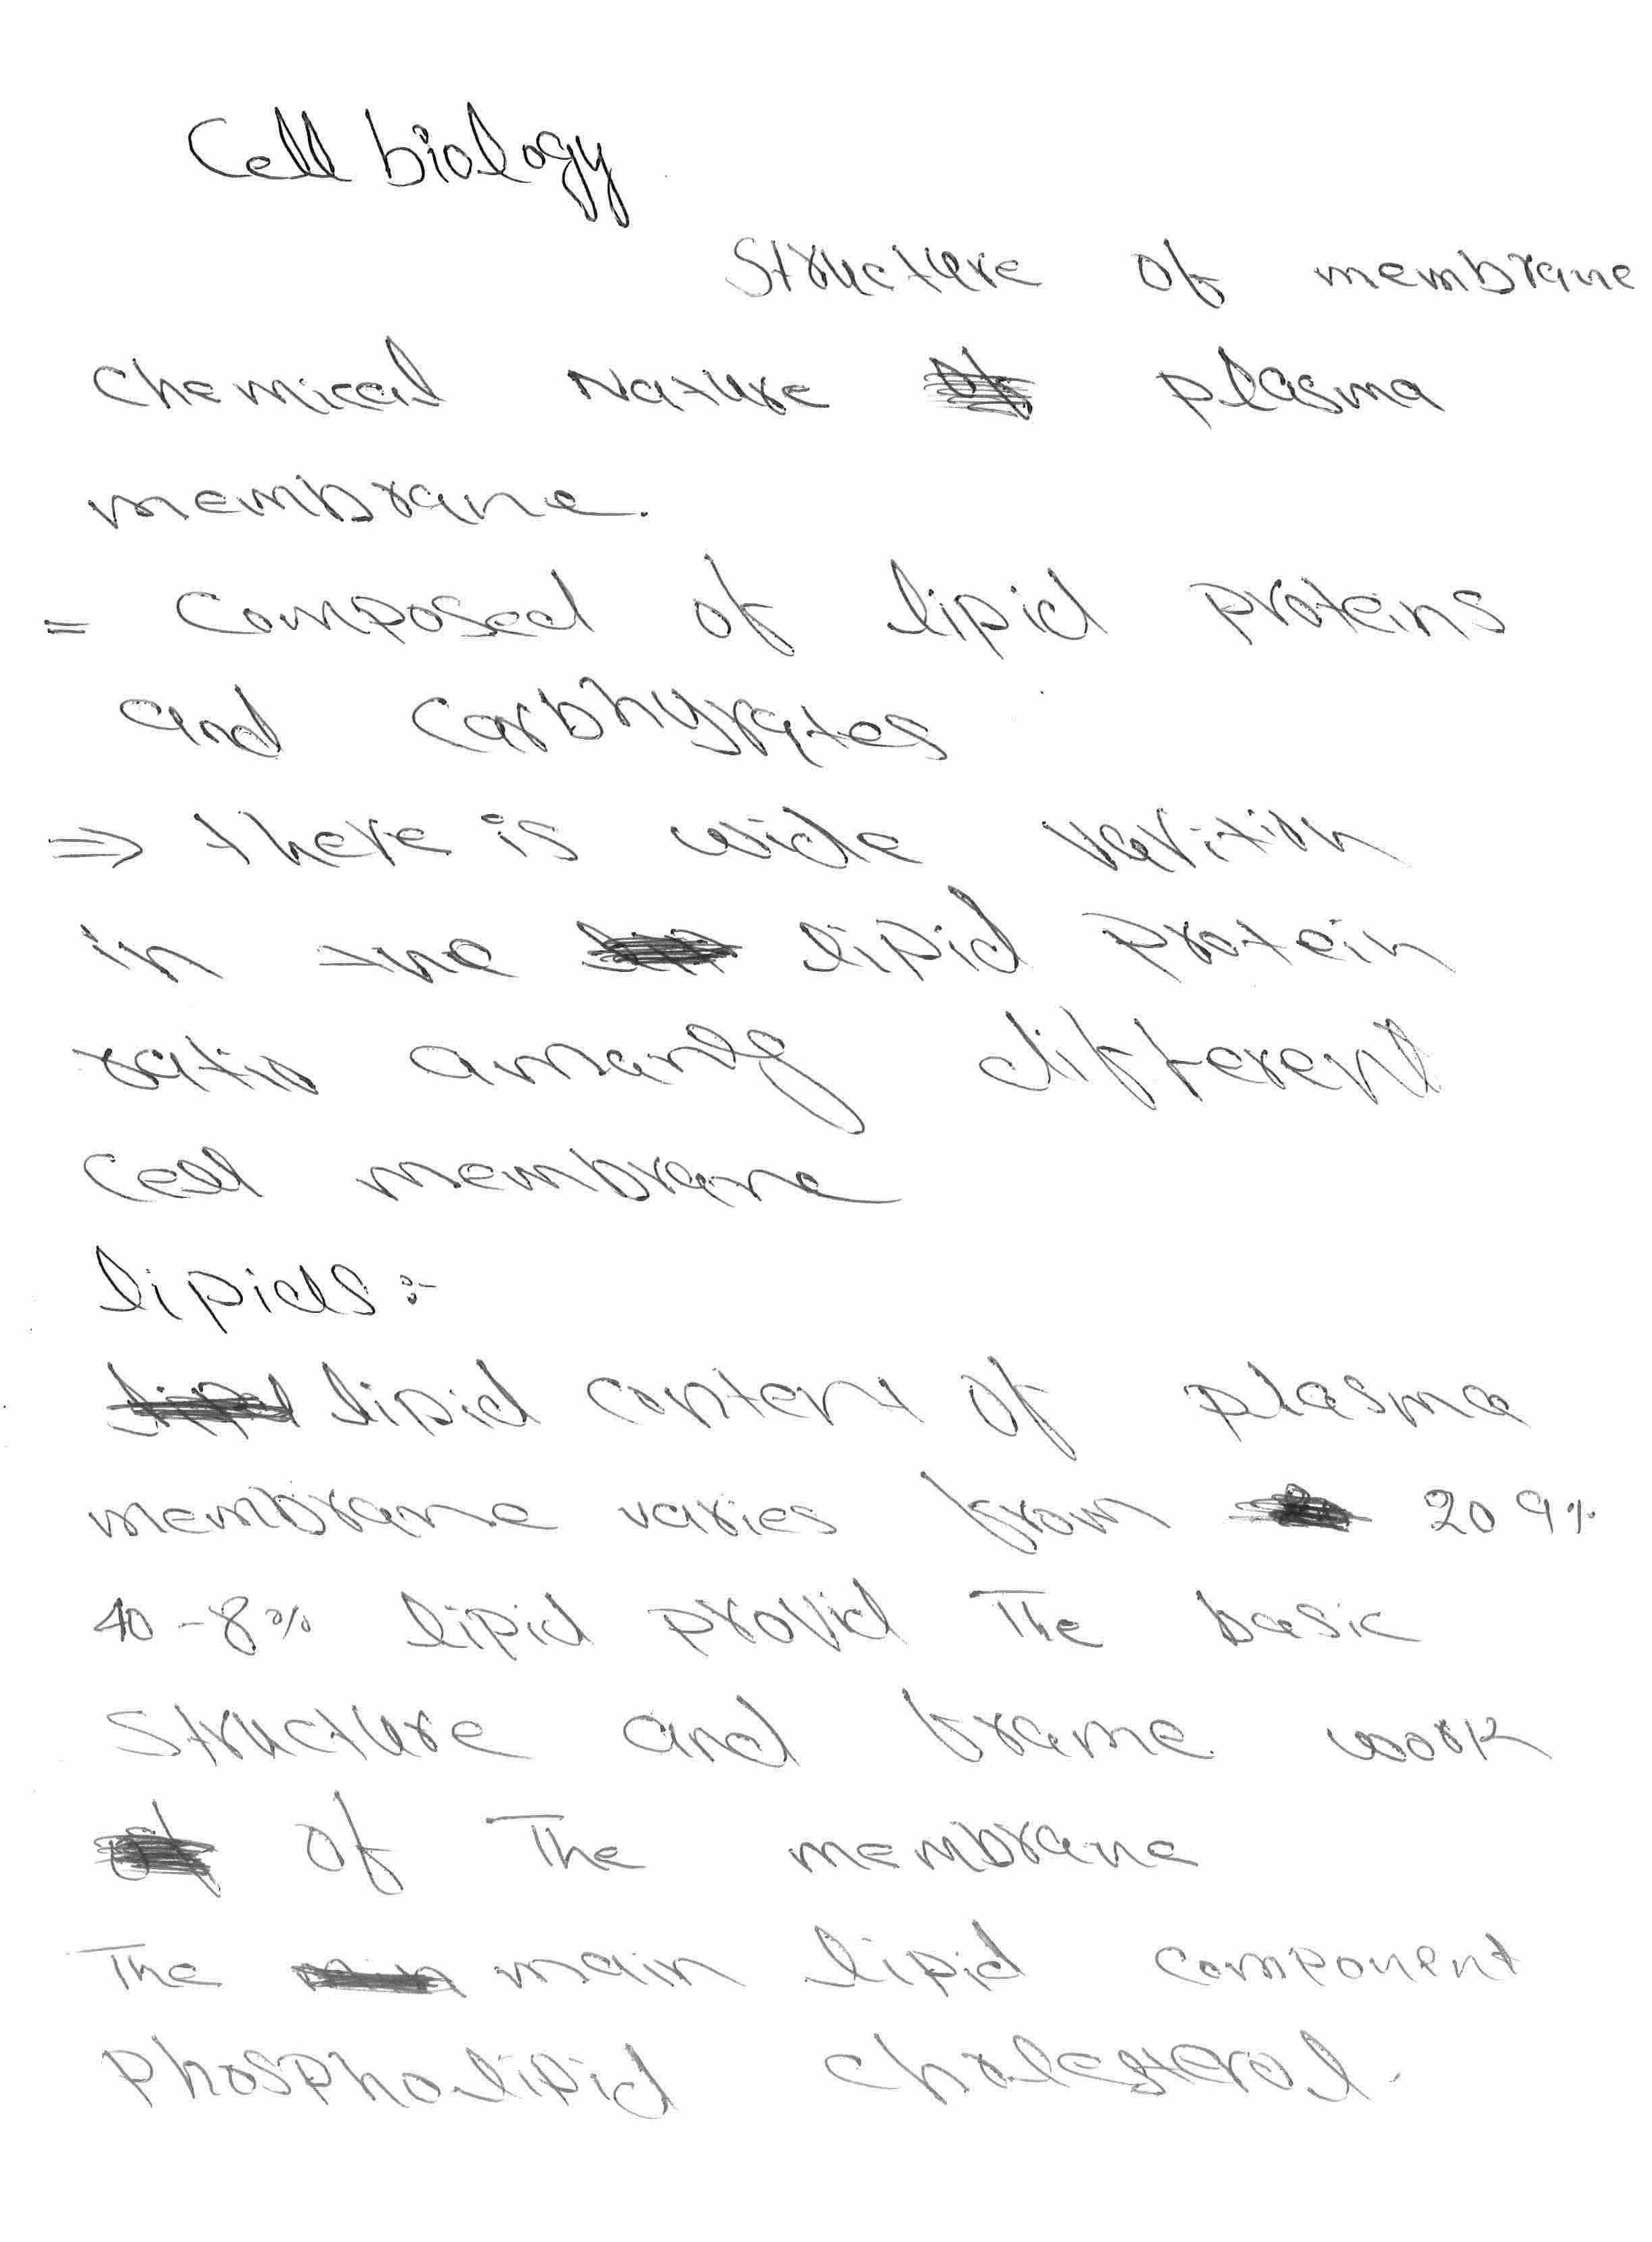 Cell biology
Structure of membrane
Chemical Nature plasma
membrane.
= Composed of lipid proteins
and Carbhyrates
⇒ there is wide varition
in the lipid protein
ratio amang different
Cell membrane
lipids :-
lipid content of plasma
membrane varies from 20 9%
40 - 8% lipid provid The basic
Structure and frame work
of The membrane
The main lipid component
Phospholipid cholesterol.